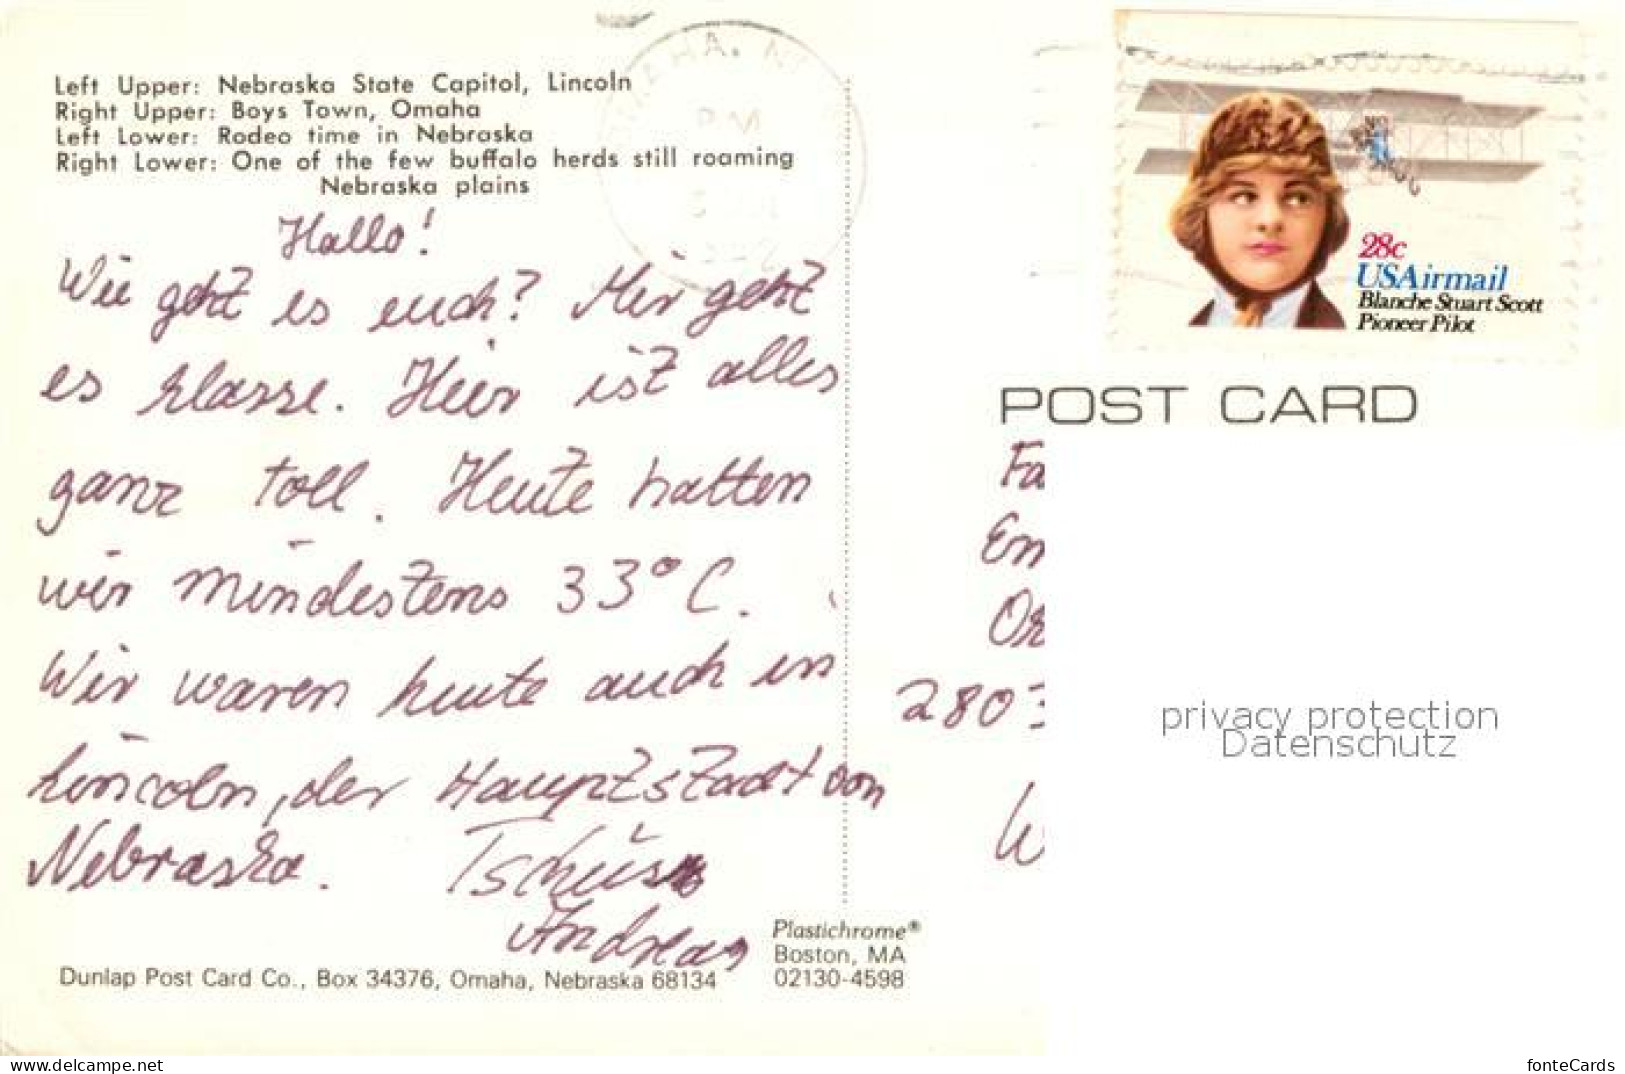 Left Upper: Nebraska State Capitol, Lincoln
Right Upper: Boys Town, Omaha
Left Lower: Rodeo time in Nebraska
Right Lower: One of the few buffalo herds still roaming
Nebraska plains
Hallo!
Wie geht es euch? Mir geht
es klasse. Hier ist alles
ganz toll. Heute hatten
wir mindestens 33° C.
Wir waren heute auch in
Lincoln, der Hauptstadt von
Nebraska. Tschüss
Andreas
Plastichrome®
Boston, MA
02130-4598
Dunlap Post Card Co., Box 34376, Omaha, Nebraska 68134
OMAHA, N
PM
28c
USAirmail
Blanche Stuart Scott
Pioneer Pilot
POST CARD
Fa
Em
2803
W
privacy protection
Datenschutz
fonteCards